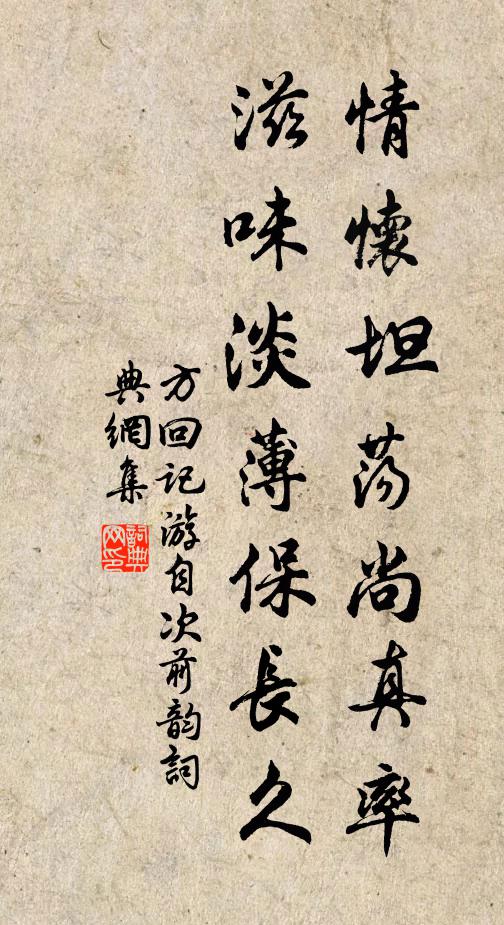 情懷坦荡尚真率
滋味淡薄保長久
方回記游自次前韵詞
典網集
詞典
网印